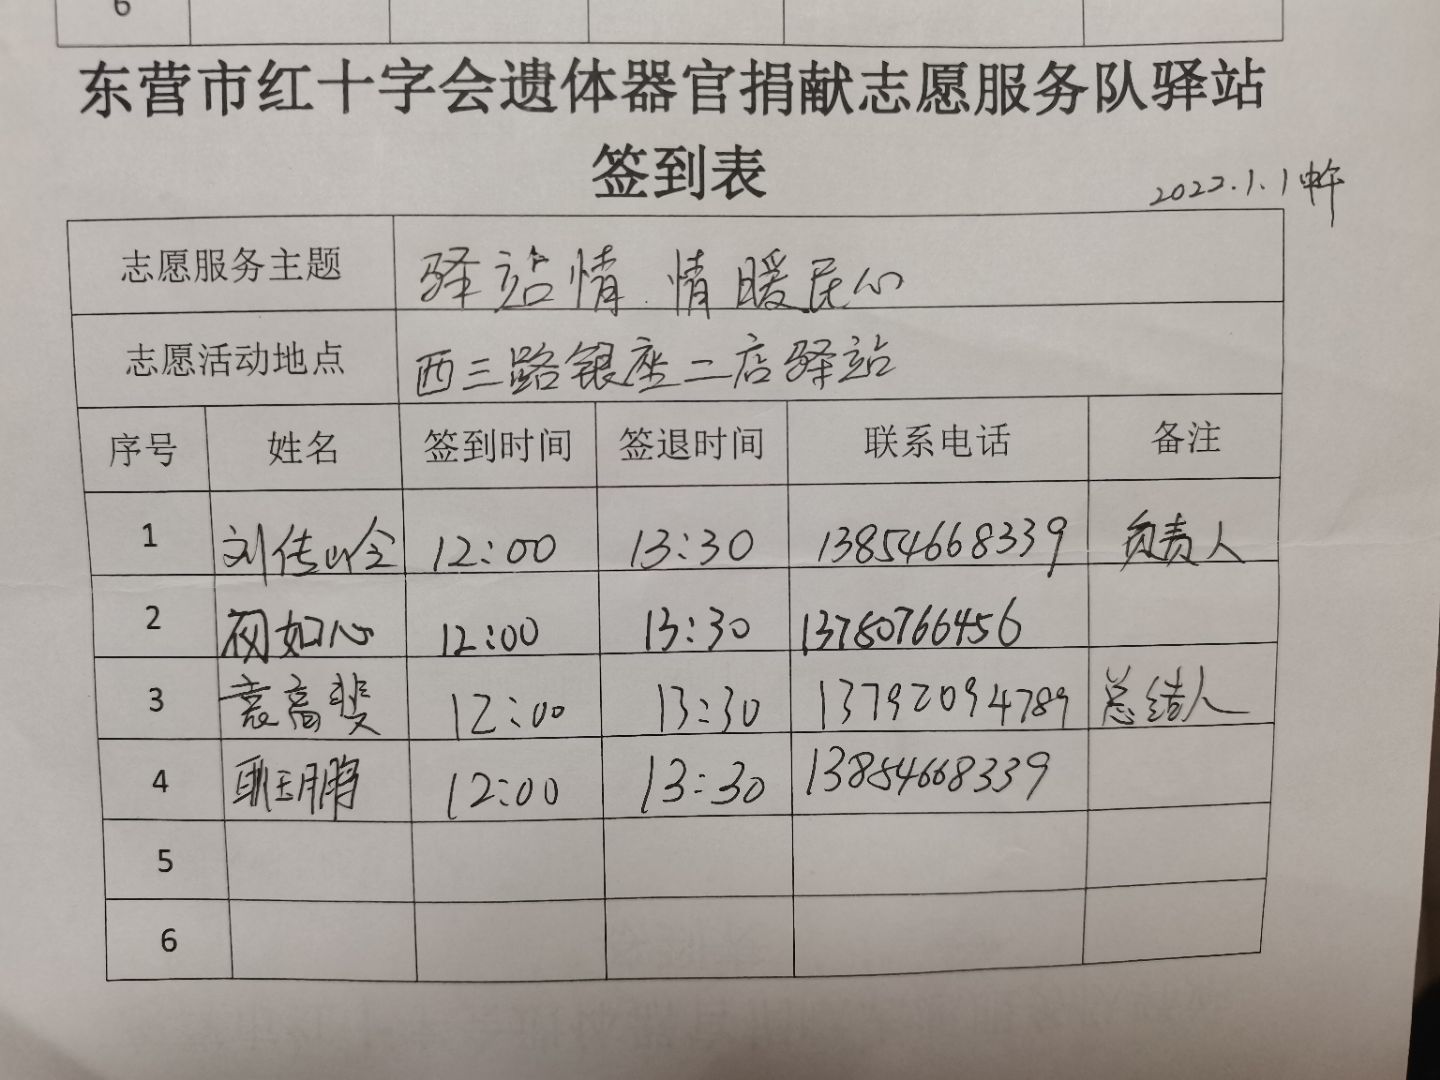 6
东营市红十字会遗体器官捐献志愿服务队驿站
签到表
2022.1.1 中午
志愿服务主题 驿站情 情暖民心
志愿活动地点 西三路银座二店驿站
序号 姓名 签到时间 签退时间 联系电话 备注
1 刘传全 12:00 13:30 13854668339 负责人
2 如心 12:00 13:30 13780766456
3 袁高斐 12:00 13:30 13792094789 总结人
4 耿玉鹏 12:00 13:30 13854668339
5
6